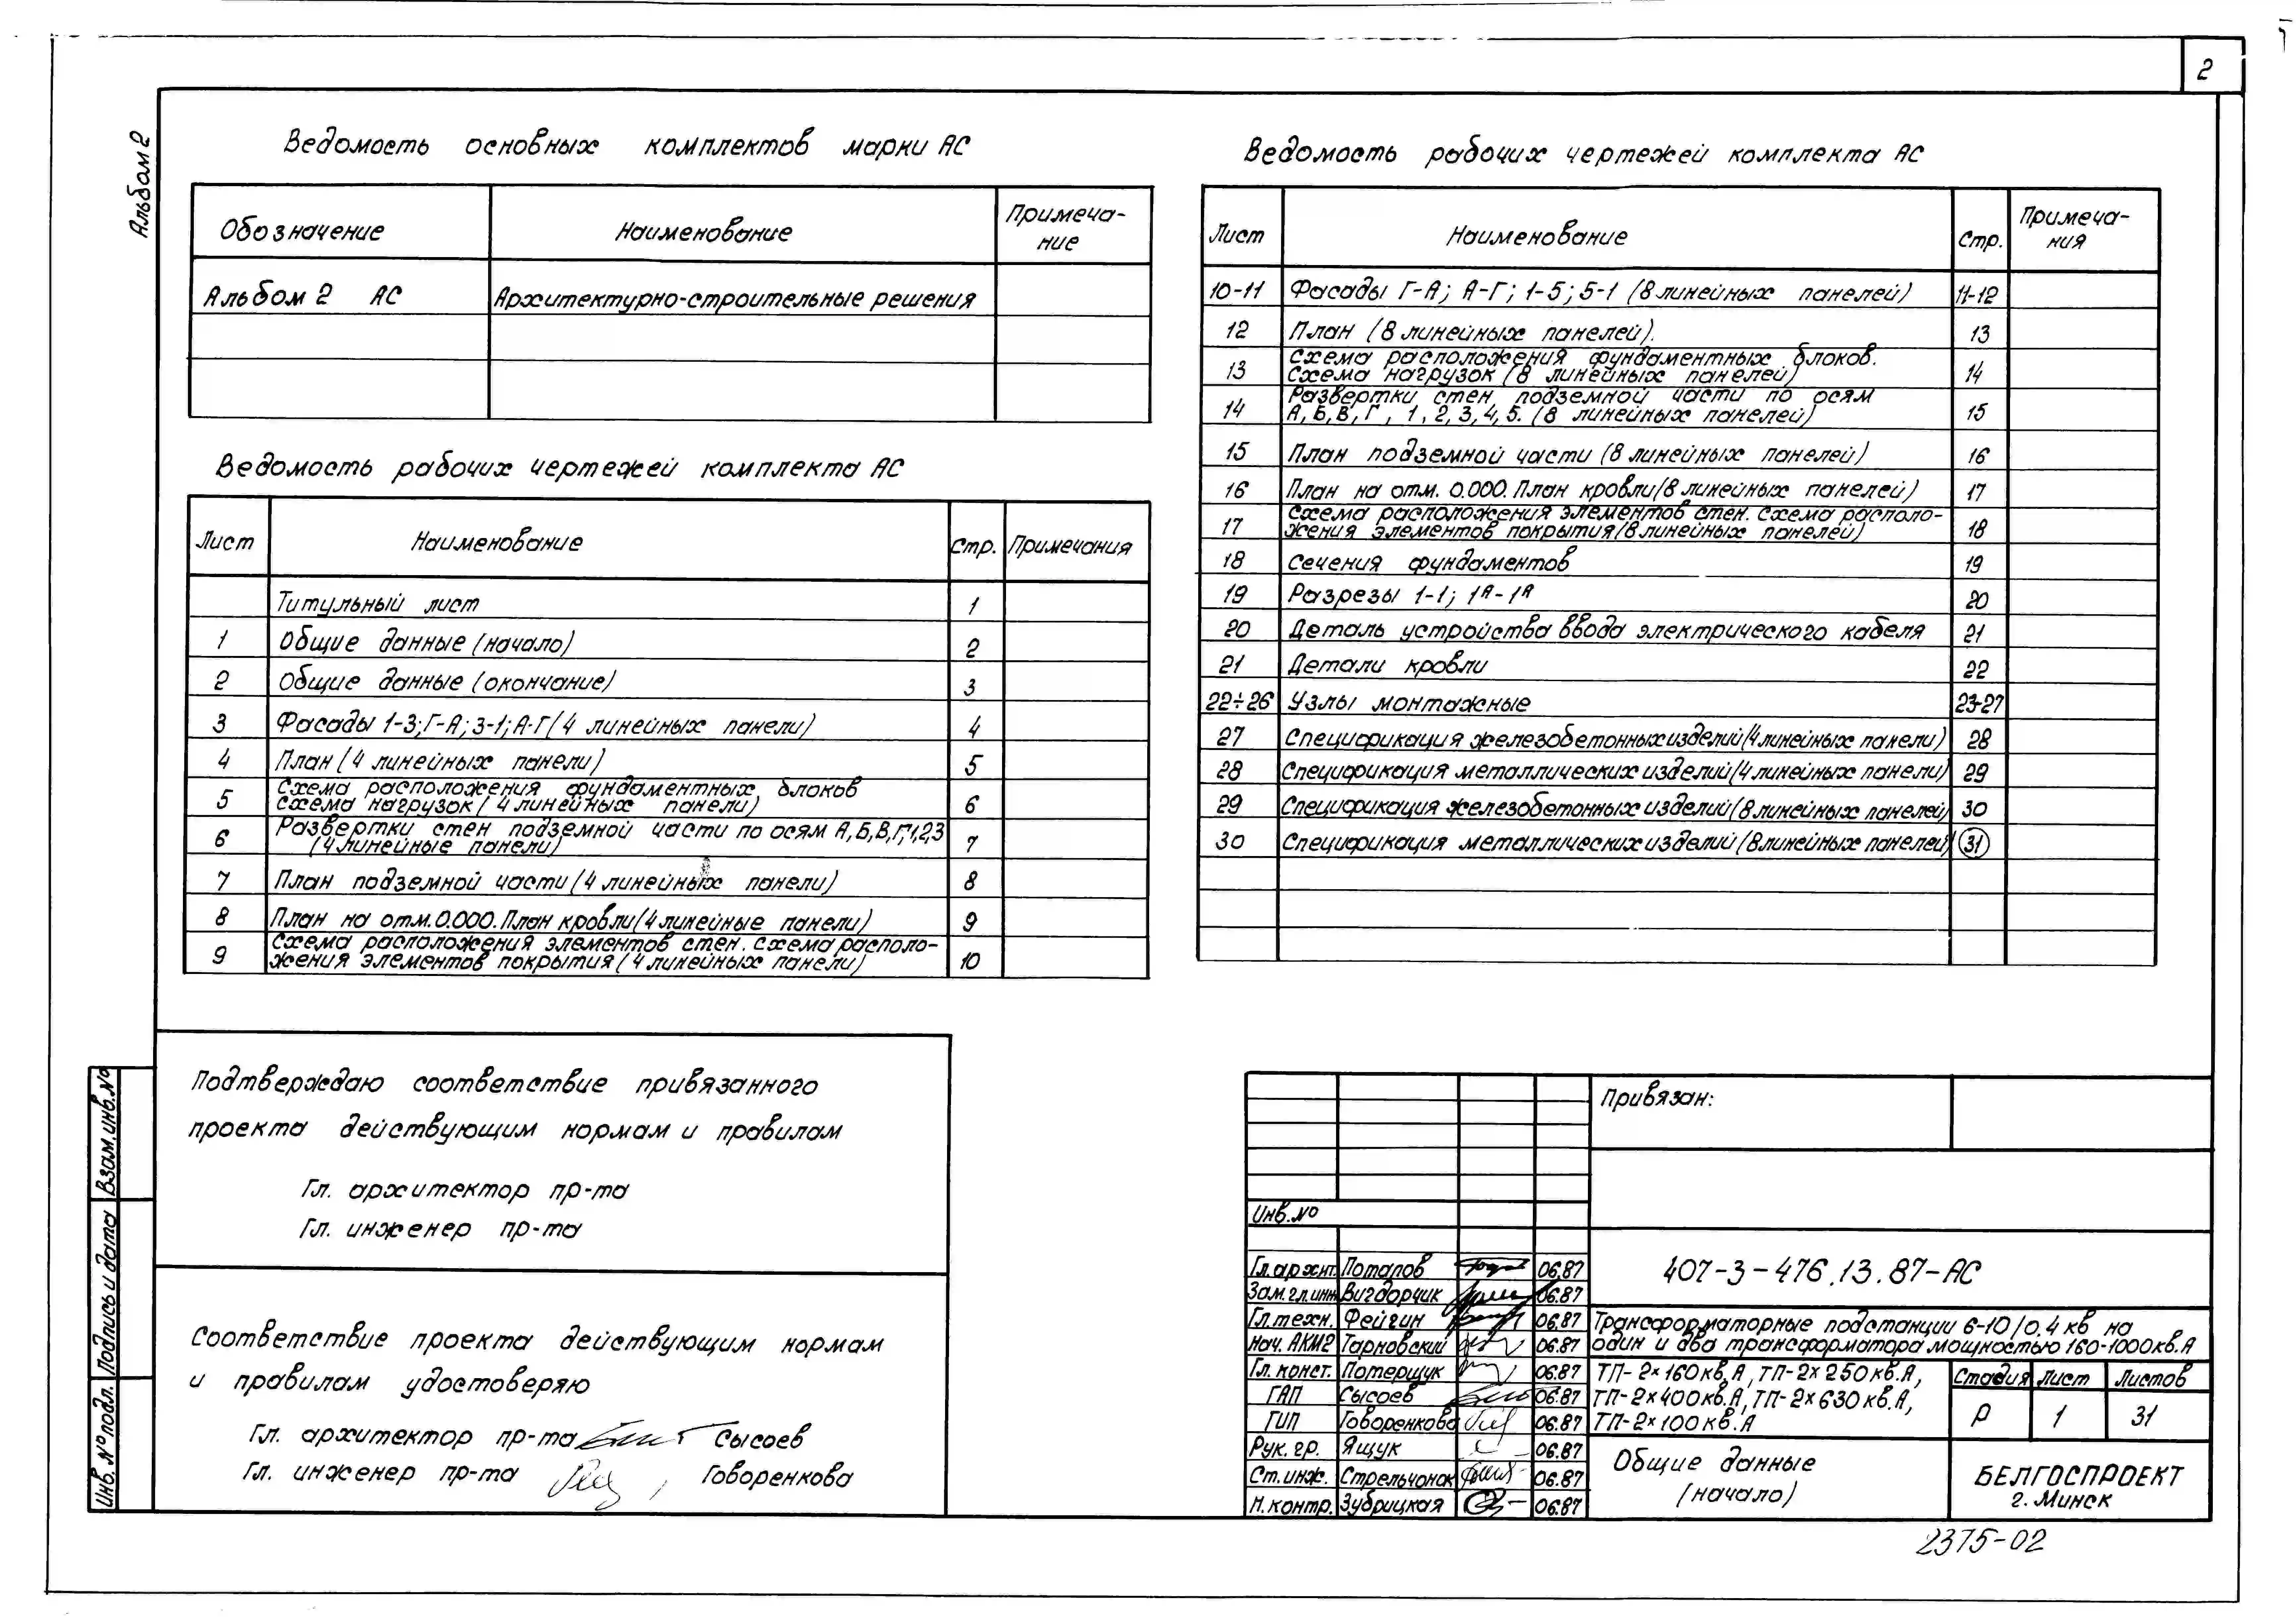 2
Альбом 2
Ведомость основных комплектов марки АС
Обозначение Наименование Примеча-
ние
Альбом 2 АС Архитектурно-строительные решения
Ведомость рабочих чертежей комплекта АС
Лист Наименование Стр. Примечания
Титульный лист 1
1 Общие данные (начало) 2
2 Общие данные (окончание) 3
3 Фасады 1-3; Г-А; 3-1; А-Г (4 линейных панели) 4
4 План (4 линейных панели) 5
5 Схема расположения фундаментных блоков
схема нагрузок (4 линейных панели) 6
6 Развертки стен подземной части по осям А,Б,В,Г,1,2,3
(4 линейные панели) 7
7 План подземной части (4 линейных панели) 8
8 План на отм. 0.000. План кровли (4 линейные панели) 9
9 Схема расположения элементов стен. Схема располо-
жения элементов покрытия (4 линейных панели) 10
Ведомость рабочих чертежей комплекта АС
Лист Наименование Стр. Примеча-
ния
10-11 Фасады Г-А; А-Г; 1-5; 5-1 (8 линейных панелей) 11-12
12 План (8 линейных панелей). 13
13 Схема расположения фундаментных блоков.
Схема нагрузок (8 линейных панелей) 14
14 Развертки стен подземной части по осям
А,Б,В,Г, 1,2,3,4,5. (8 линейных панелей) 15
15 План подземной части (8 линейных панелей) 16
16 План на отм. 0.000. План кровли (8 линейных панелей) 17
17 Схема расположения элементов стен. Схема располо-
жения элементов покрытия (8 линейных панелей) 18
18 Сечения фундаментов 19
19 Разрезы 1-1; 1А-1А 20
20 Деталь устройства ввода электрического кабеля 21
21 Детали кровли 22
22÷26 Узлы монтажные 23-27
27 Спецификация железобетонных изделий (4 линейных панели) 28
28 Спецификация металлических изделий (4 линейных панели) 29
29 Спецификация железобетонных изделий (8 линейных панелей) 30
30 Спецификация металлических изделий (8 линейных панелей) 31
Подтверждаю соответствие привязанного
проекта действующим нормам и правилам
Гл. архитектор пр-та
Гл. инженер пр-та
Соответствие проекта действующим нормам
и правилам удостоверяю
Гл. архитектор пр-та Сысоев
Гл. инженер пр-та Говоренкова
Взам. инв. №
Подпись и дата
Инв. № подл.
Привязан:
Инв. №
Гл. архит. Потапов 06.87
Зам. гл. инж. Вигдорчик 06.87
Гл. техн. Фейгин 06.87
Нач. АКМ2 Тарновский 06.87
Гл. конст. Потерщук 06.87
ГАП Сысоев 06.87
ГИП Говоренкова 06.87
Рук. гр. Ящук 06.87
Ст. инж. Стрельчонок 06.87
Н. контр. Зубрицкая 06.87
407-3-476.13.87-АС
Трансформаторные подстанции 6-10/0.4 кв на
один и два трансформатора мощностью 160-1000 кв.А
ТП-2×160 кв.А, ТП-2×250 кв.А,
ТП-2×400 кв.А, ТП-2×630 кв.А,
ТП-2×100 кв.А
Стадия Лист Листов
Р 1 31
Общие данные
(начало)
БЕЛГОСПРОЕКТ
г. Минск
2375-02